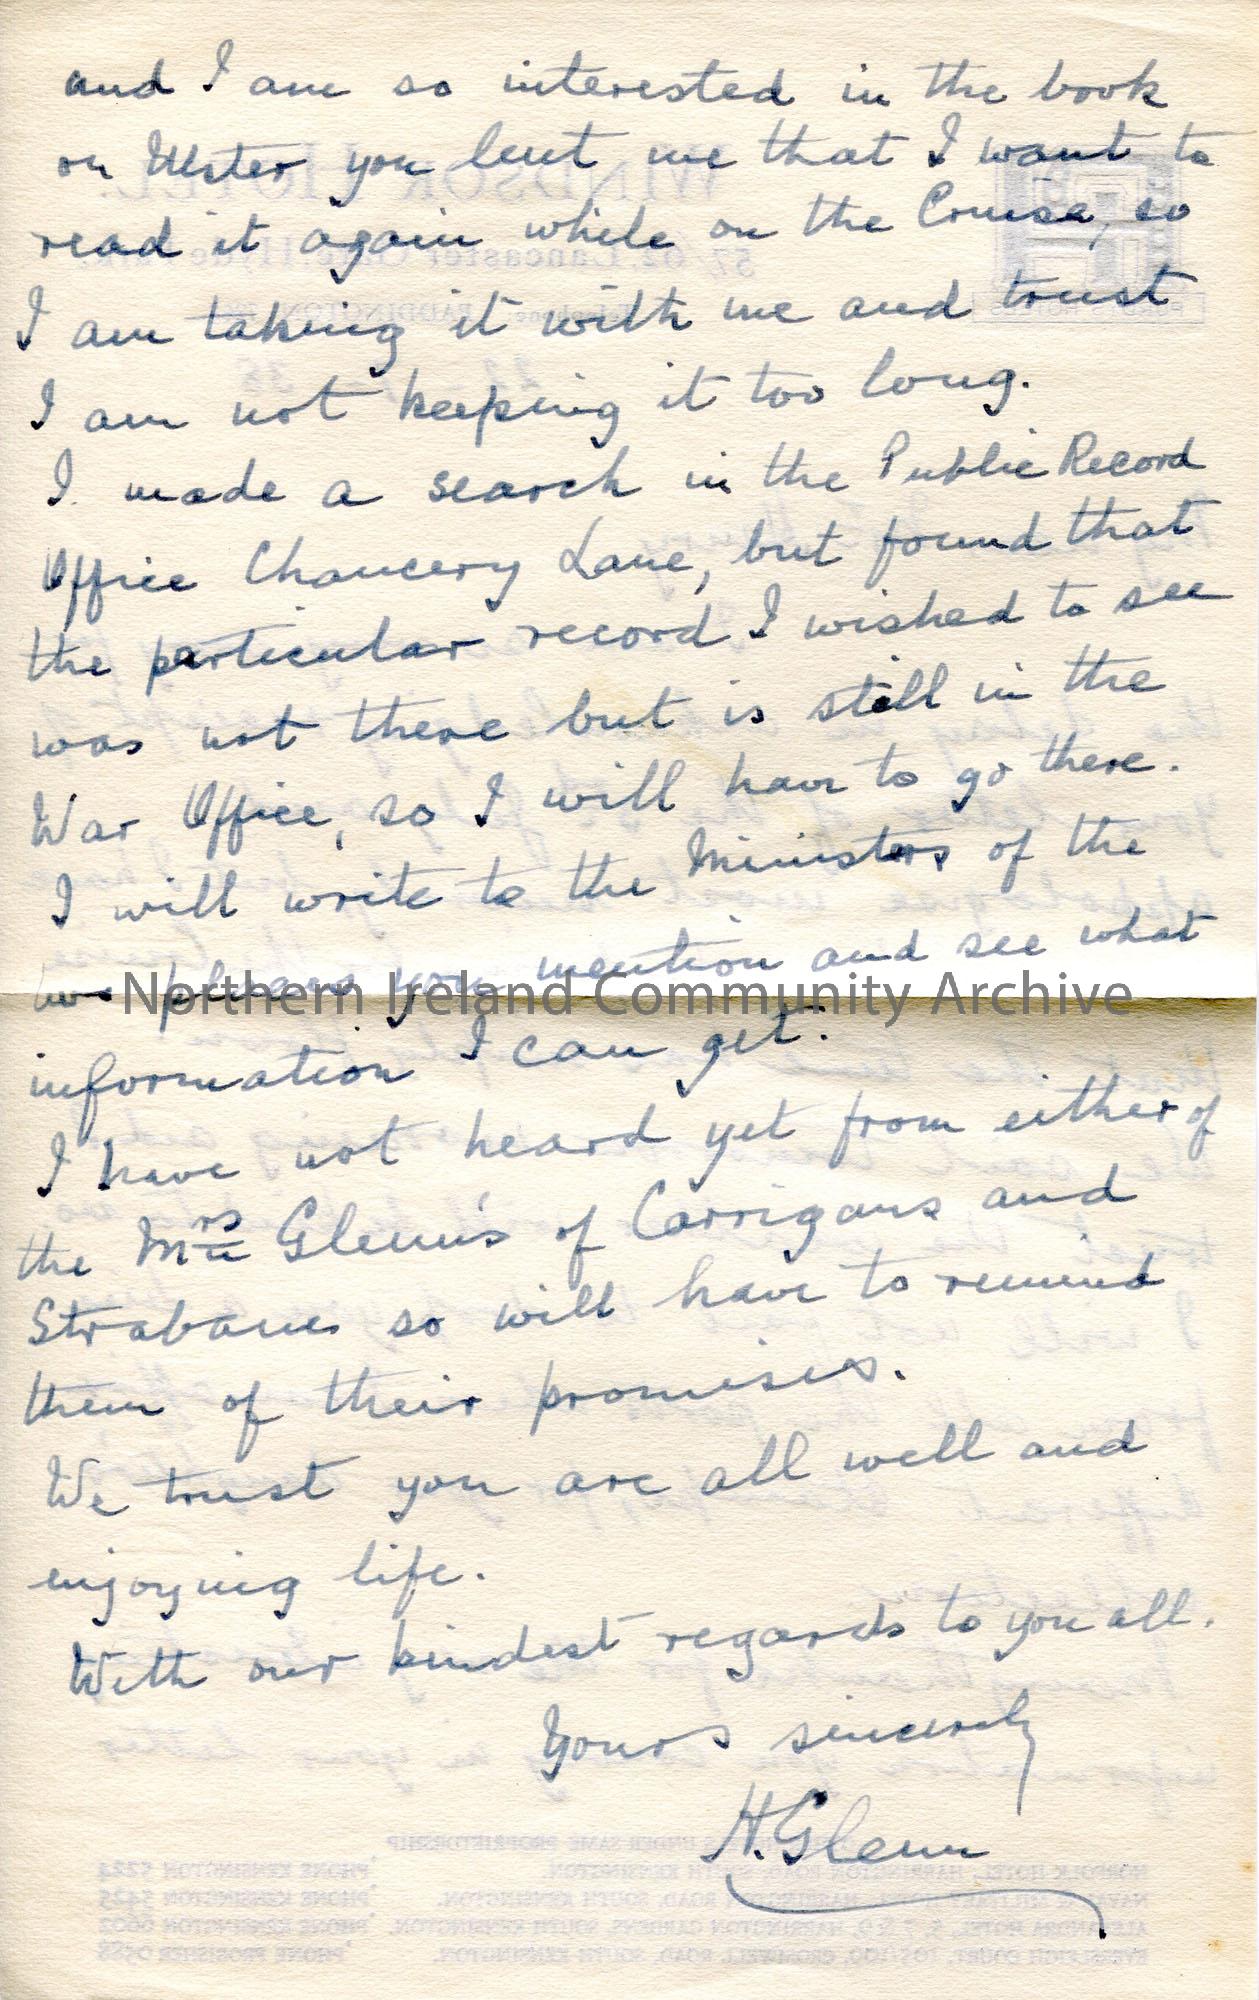 and I am so interested in the book
on Ulster you lent me that I want to
read it again while on the Cruise, so
I am taking it with me and trust
I am not keeping it too long.
I made a search in the Public Record
Office Chancery Lane, but found that
the particular record I wished to see
was not there but is still in the
War Office, so I will have to go there.
I will write to the Ministers of the
two places you mention and see what
Northern Ireland Community Archive
information I can get.
I have not heard yet from either of
the Mrs Glenn's of Carrigans and
Strabane so will have to remind
them of their promises.
We trust you are all well and
enjoying life.
With our kindest regards to you all.
Yours sincerely
H. Glenn